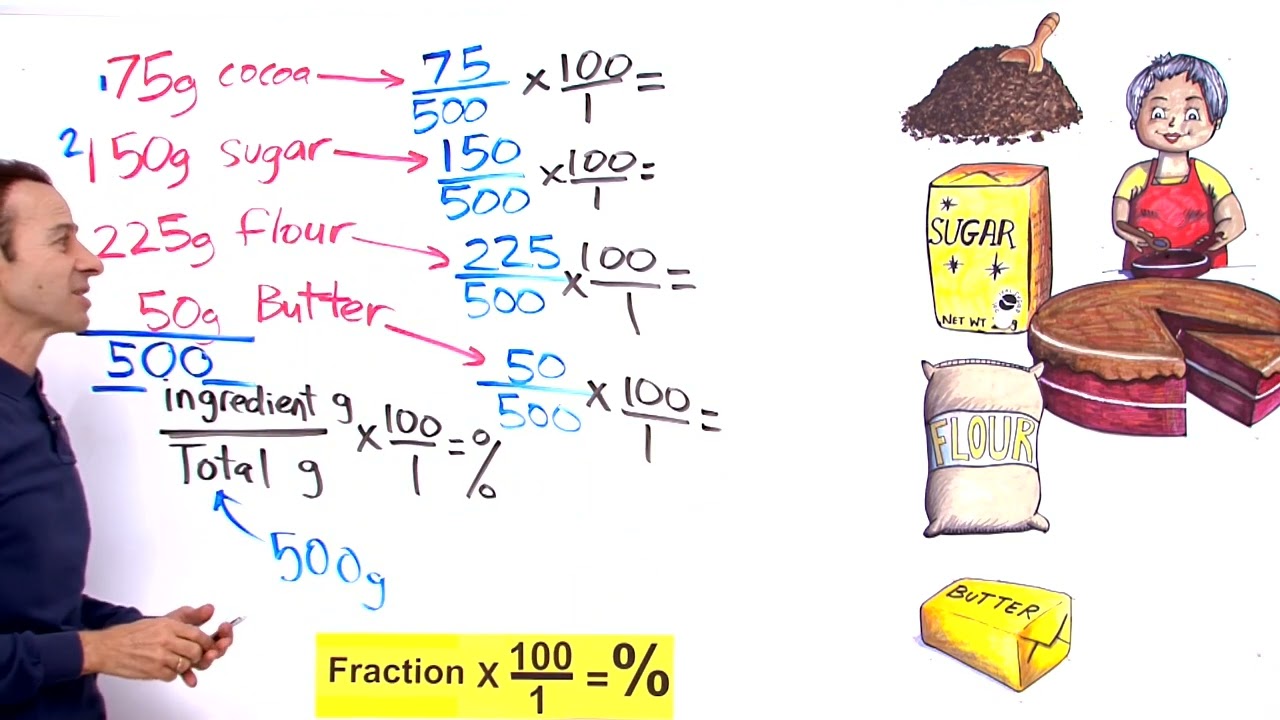 1
75g cocoa → 75/500 × 100/1 =
2
150g sugar → 150/500 × 100/1 =
225g flour → 225/500 × 100/1 =
50g Butter → 50/500 × 100/1 =
500
ingredient g / Total g × 100/1 = %
500g
Fraction × 100/1 = %
SUGAR
NET WT g
FLOUR
BUTTER